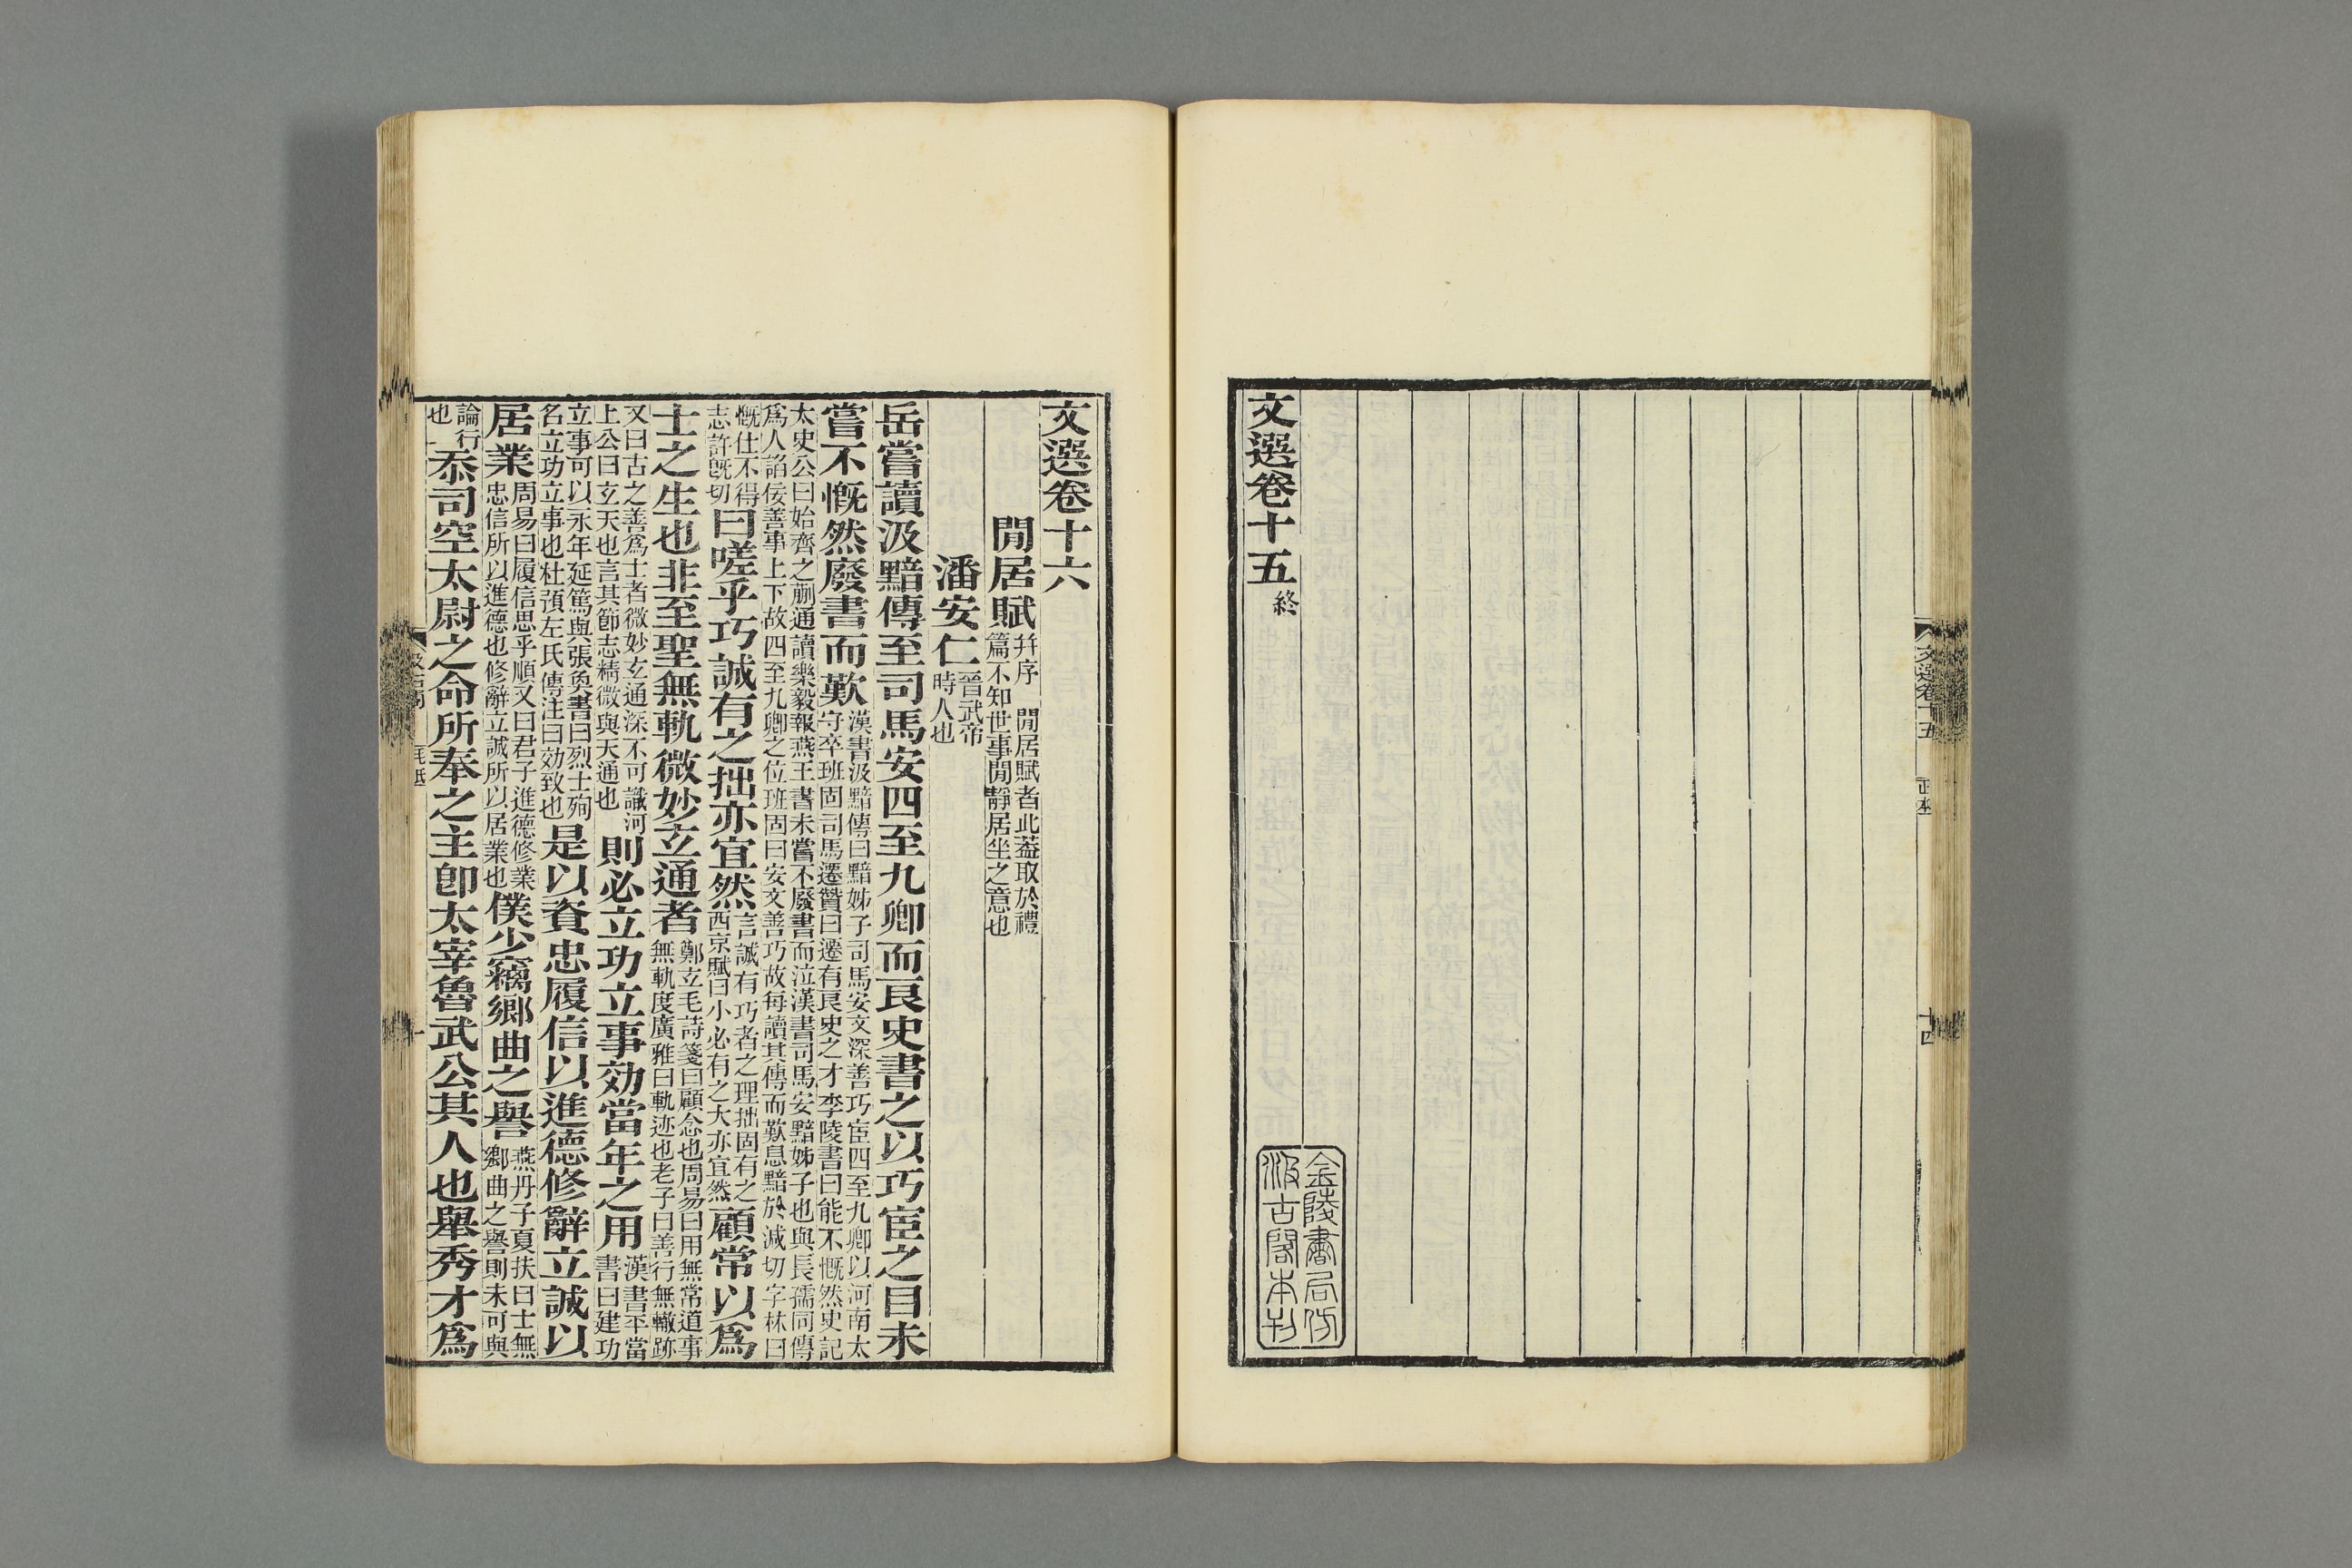 文選卷十五
文選卷十五終
金陵書局仿
汲古閣本刊
文選卷十六
閒居賦
幷序 閒居賦者此葢取於禮
篇不知世事閒靜居坐之意也
潘安仁
晉武帝
時人也
岳嘗讀汲黯傳至司馬安四至九卿而良史書之以巧宦之目未
嘗不慨然廢書而歎
漢書汲黯傳曰黯姊子司馬安文深善巧宦四至九卿以河南太
守卒班固司馬遷贊曰遷有良史之才李陵書曰能不慨然史記
太史公曰始齊之蒯通讀樂毅報燕王書未嘗不廢書而泣漢書司馬安黯姊子也與長孺同傳
爲人諂佞善事上下故四至九卿之位班固曰安文善巧故每讀其傳而歎息黯於減切字林曰
慨仕不得
志許旣切
曰嗟乎巧誠有之拙亦宜然
言誠有巧者之理拙固有之
西京賦曰小必有之大亦宜然
顧常以爲
士之生也非至聖無軌微妙玄通者
鄭玄毛詩箋曰顧念也周易曰用無常道事
無軌度廣雅曰軌迹也老子曰善行無轍跡
又曰古之善爲士者微妙玄通深不可識河
上公曰玄天也言其節志精微與天通也
則必立功立事効當年之用
漢書平當
書曰建功
立事可以永年延篤與張奐書曰烈士殉
名立功立事也杜預左氏傳注曰効致也
是以資忠履信以進德修辭立誠以
居業
周易曰履信思乎順又曰君子進德修業
忠信所以進德也修辭立誠所以居業也
僕少竊鄉曲之譽
燕丹子夏扶曰士無
鄉曲之譽則未可與
論行
也
忝司空太尉之命所奉之主卽太宰魯武公其人也舉秀才爲